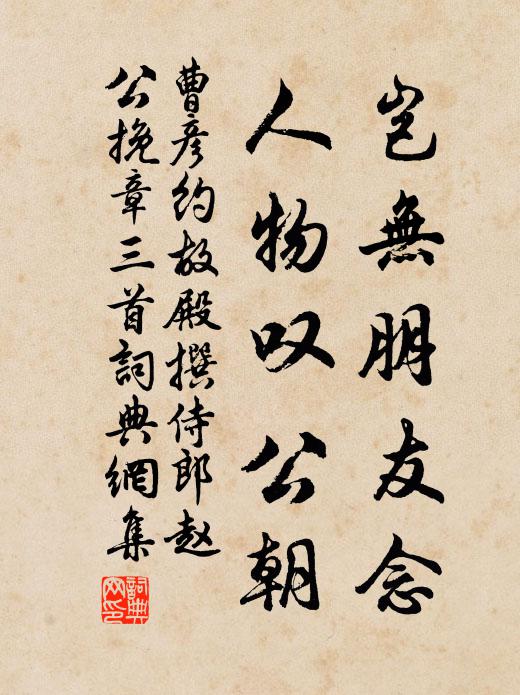 岂無朋友念
人物叹公朝
曹彦约故殿撰侍郎赵
公挽章三首詞典網集
詞典網印